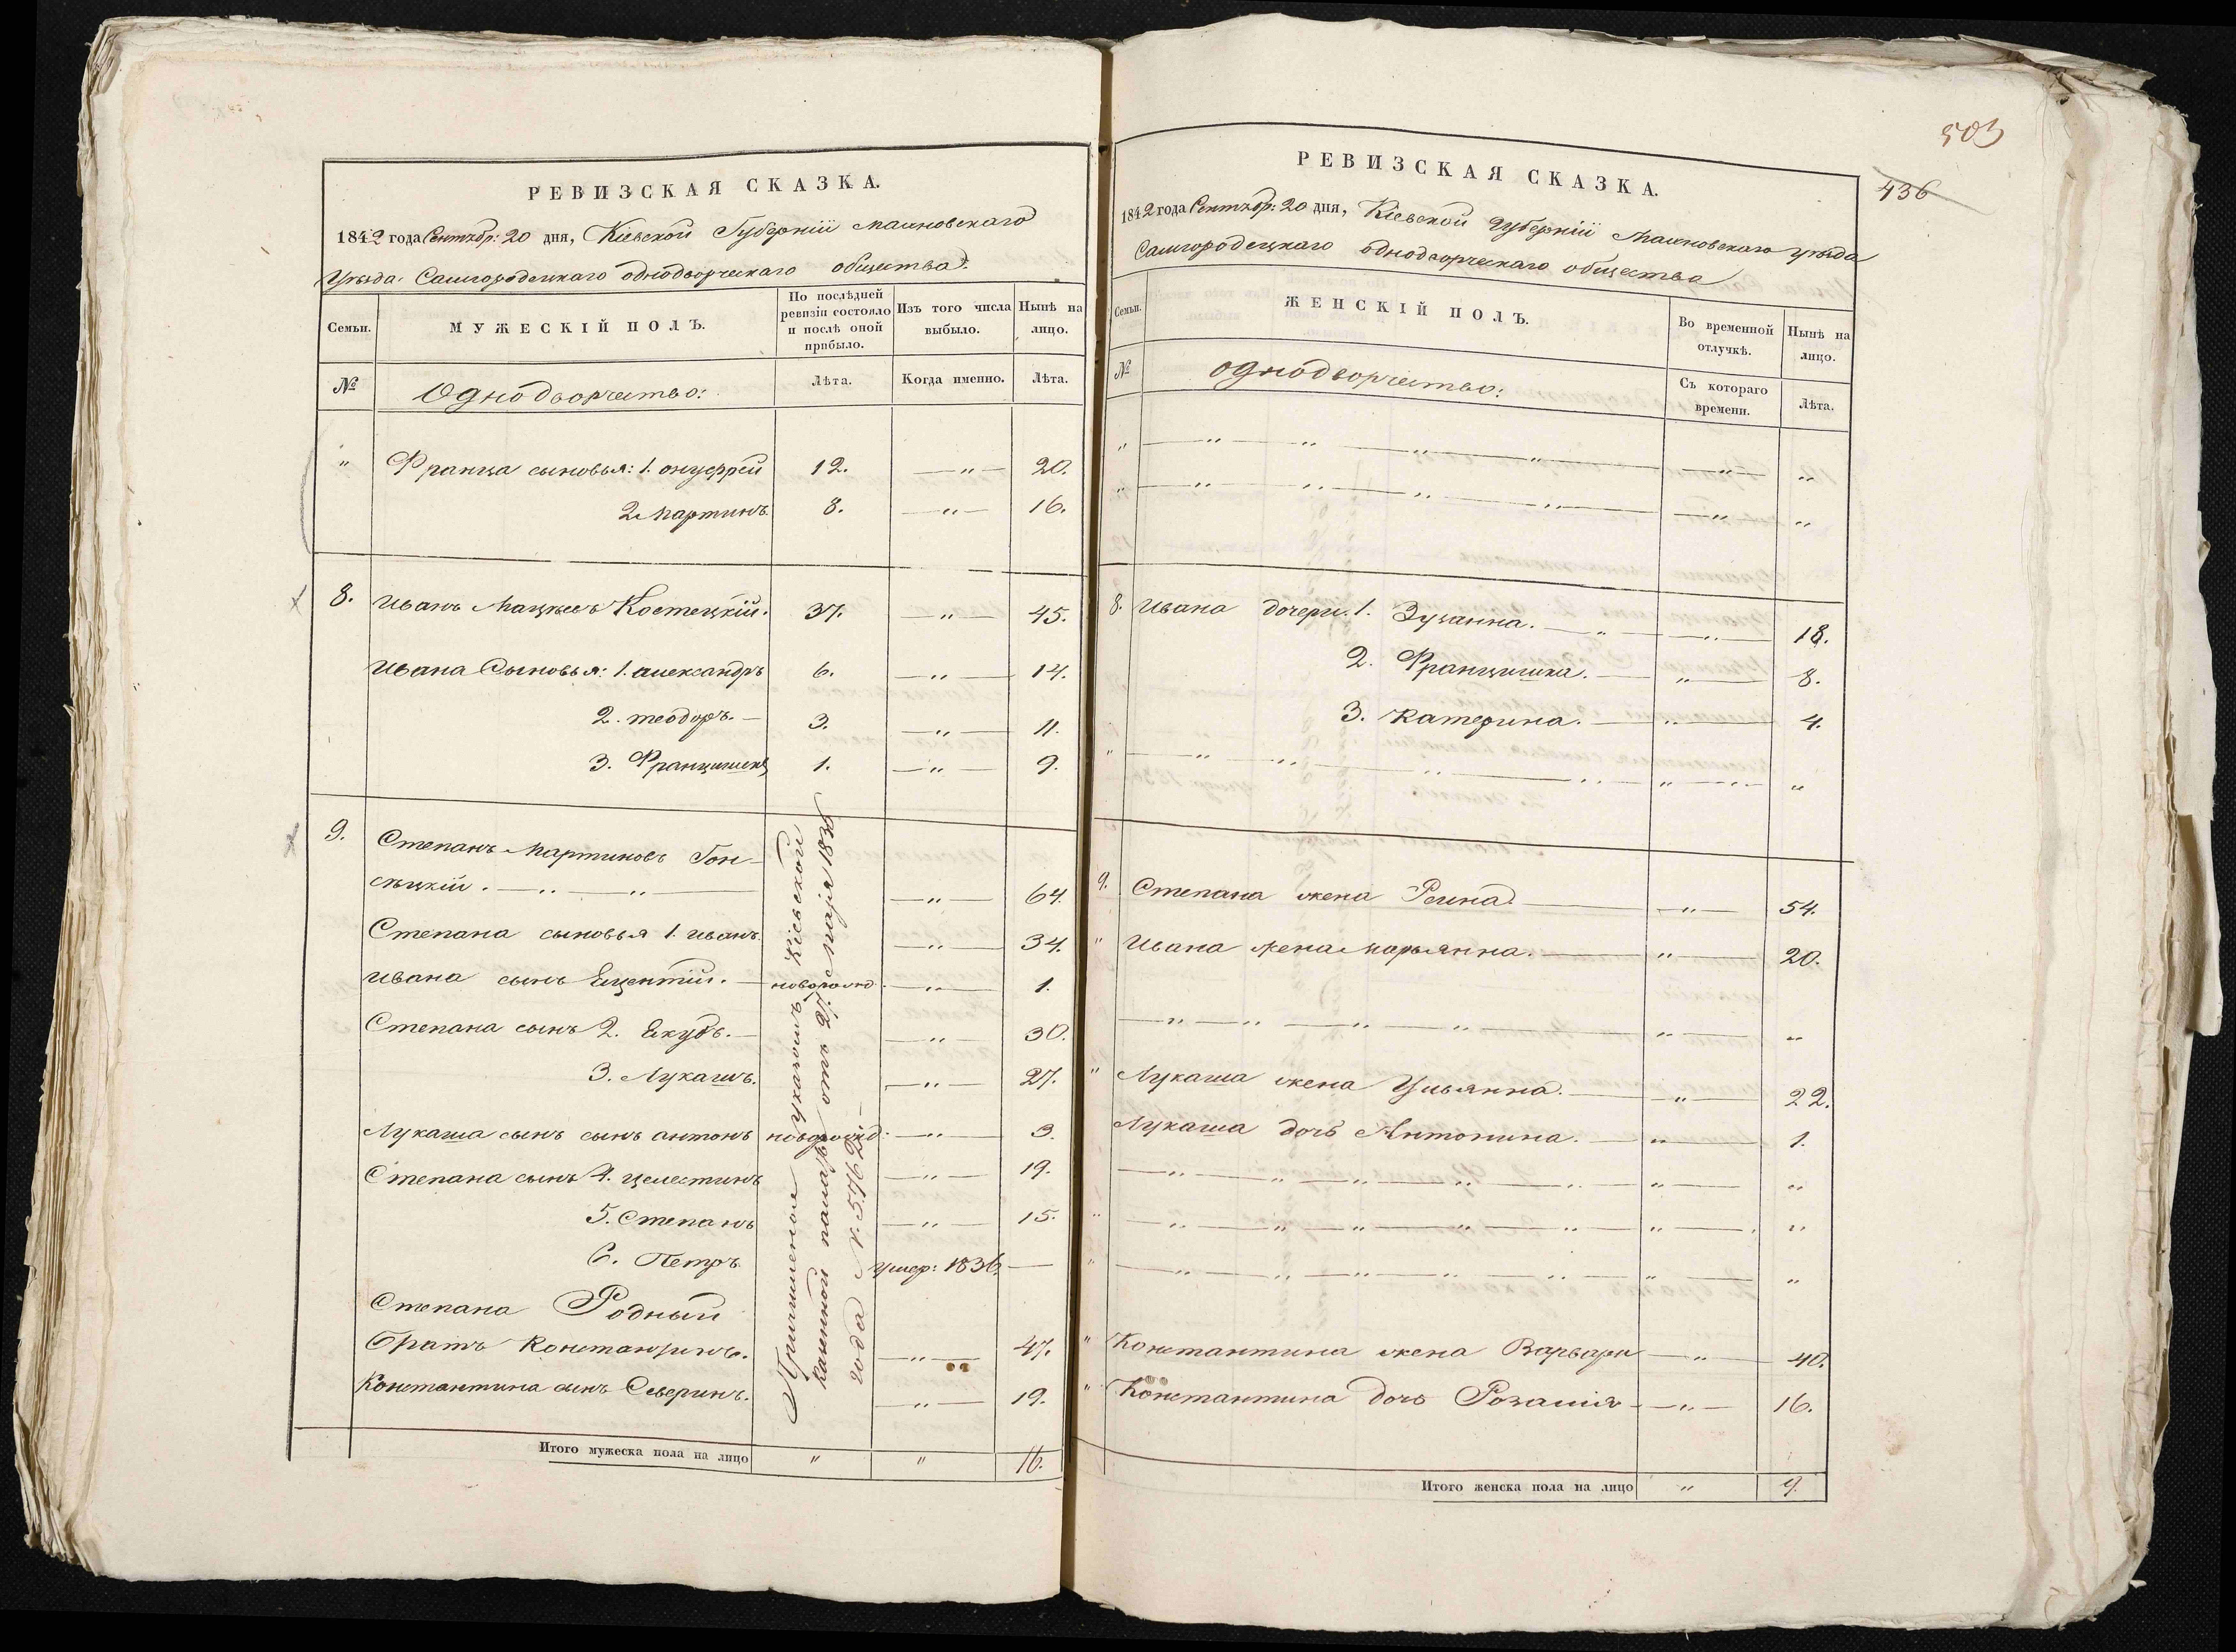 РЕВИЗСКАЯ СКАЗКА.
1842 года Сентябр: 20 дня, Кіевской Губерніи Махновскаго
Уѣзда. Самгородецкаго однодворческаго общества.
Семьи.
МУЖЕСКІЙ ПОЛЪ.
По послѣдней ревизіи состояло и послѣ оной прибыло.
Изъ того числа выбыло.
Нынѣ на лицо.
№ Однодворчество: Лѣта. Когда именно. Лѣта.
" Франца сыновья: 1. онуфрей 12. — " — 20.
2. Мартинъ 8. — " — 16.
8. Иванъ Мацѣевъ Костецкій. 37. — " — 45.
Ивана Сыновья: 1. александръ 6. — " — 14.
2. теодоръ. — 3. — " — 11.
3. Францишекъ 1. — " — 9.
9. Степанъ Мартиновъ Гон-
сѣцкій. — " — " — — " — 64.
Степана сыновья 1. иванъ. — " — 34.
Ивана сынъ Ецентій. — новорожд. — " — 1.
Степана сынъ 2. Екубъ. — — " — 30.
3. Лукашъ. — " — 27.
Лукаша сынъ сынъ антонъ новорожд. — " — 3.
Степана сынъ 4. целестинъ — " — 19.
5. Степанъ — " — 15.
6. Петръ умер: 1836. —
Степана Родный
братъ Константинъ. — " — 47.
Константина сынъ Северинъ. — " — 19.
указомъ Кіевской
Казенной палаты отъ 27.
года № 5762 —
Итого мужеска пола на лицо " " 16.
503
436
РЕВИЗСКАЯ СКАЗКА.
1842 года Сентябр: 20 дня, Кіевской Губерніи Махновскаго уѣзда
Самгородецкаго однодворческаго общества
Семьи.
ЖЕНСКІЙ ПОЛЪ.
Во временной отлучкѣ.
Нынѣ на лицо.
№ Однодворчество: Съ котораго времени. Лѣта.
" — " — " — " — " — — " — "
" — " — " — " — " — — " — "
8. Ивана дочери. 1. Зузанна. — " — — " — 18.
2. Францишка. — " — 8.
3. Катерина. — " — 4.
" — " — " — " — " — " — " — "
9. Степана жена Реина. — — " — 54.
" Ивана жена Марьянна. — " — 20.
— " — " — " — " — " — "
" Лукаша жена Ульянна. — — " — 22.
Лукаша дочь Антонина. — " — 1.
— " — " — " — " — " — " — "
" — " — " — " — " — " — " — "
" — " — " — " — " — " — " — "
" Константина жена Варвара — " — 40.
" Константина дочь Розалія — — " — 16.
Итого женска пола на лицо " 9.